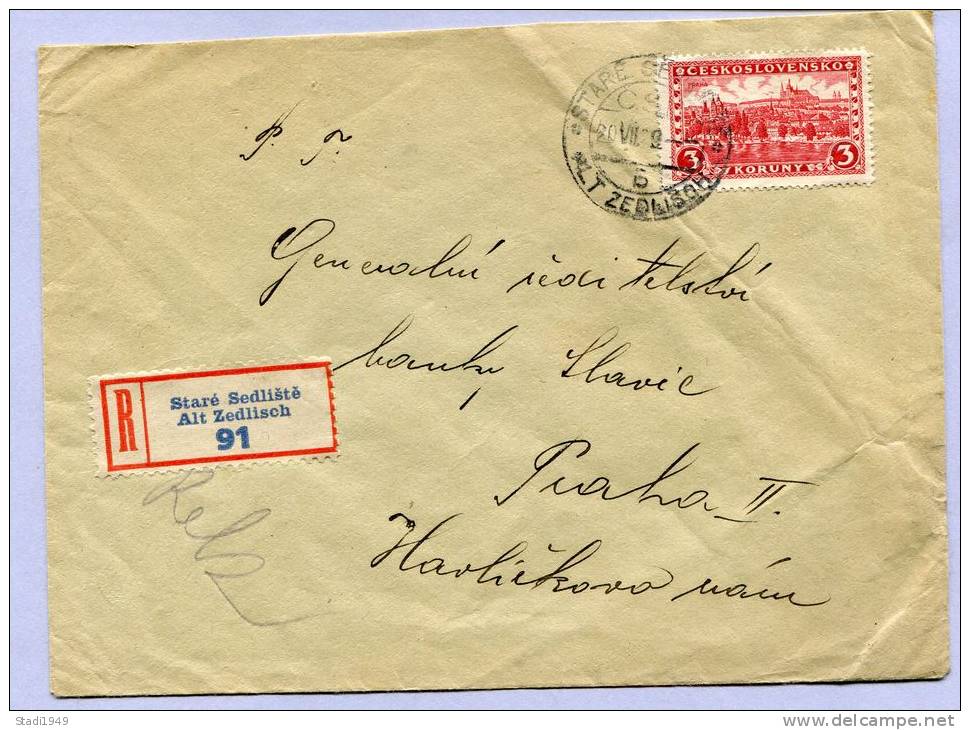 ČESKOSLOVENSKO
PRAHA
3 KORUNY 3
STARÉ SE
ČS
20 VII 29
b
ALT ZEDLISCH
P. T.
Generalní ředitelství
banky Slavie
Praha II.
Havlíčkovo nám
R
Staré Sedliště
Alt Zedlisch
91
Stadl1949
www.delcampe.net